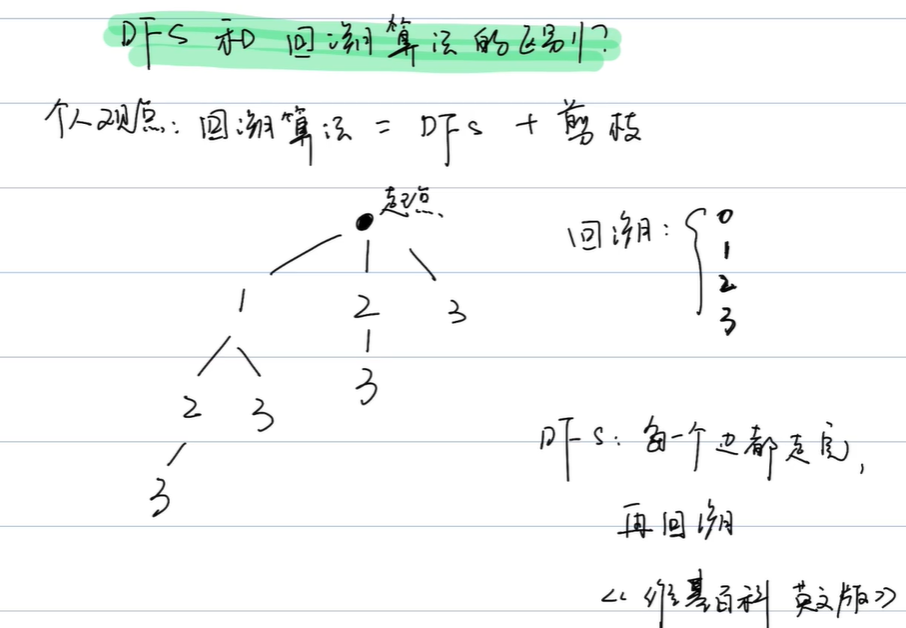 DFS 和 回溯算法的区别?
个人观点: 回溯算法 = DFS + 剪枝
起点
回溯: { 0
1
2
3
1 2 3
2 3 3
3
DFS: 每一个边都走完,
再回溯
<<维基百科 英文版>>